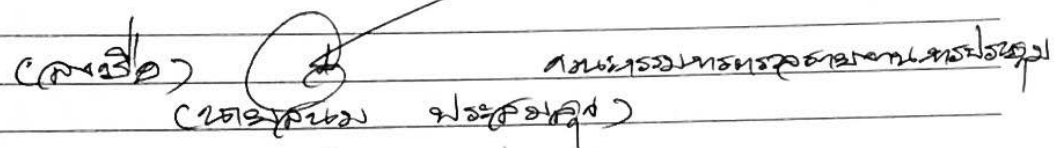 (ลงชื่อ) คณะกรรมการตรวจรายงานการประชุม
(นายสนม ประสมสุข)